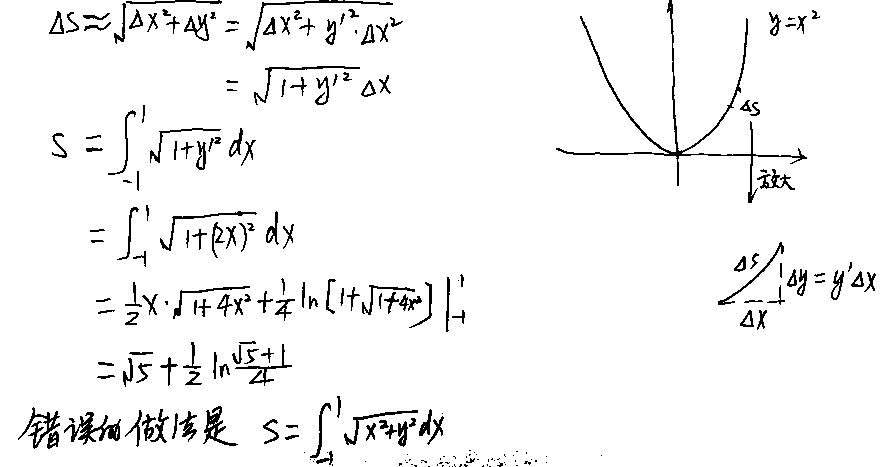 ΔS≈√(Δx²+Δy²) = √(Δx²+y'²·Δx²)
= √(1+y'²) Δx
S = ∫₋₁¹ √(1+y'²) dx
= ∫₋₁¹ √(1+(2x)²) dx
= 1/2 x·√(1+4x²) + 1/4 ln[1+√(1+4x²)] |₋₁¹
= √5 + 1/2 ln (√5+1)/4
错误的做法是 S = ∫₋₁¹ √(x²+y²) dx
y=x²
ΔS
放大
ΔS
Δy=y'Δx
Δx